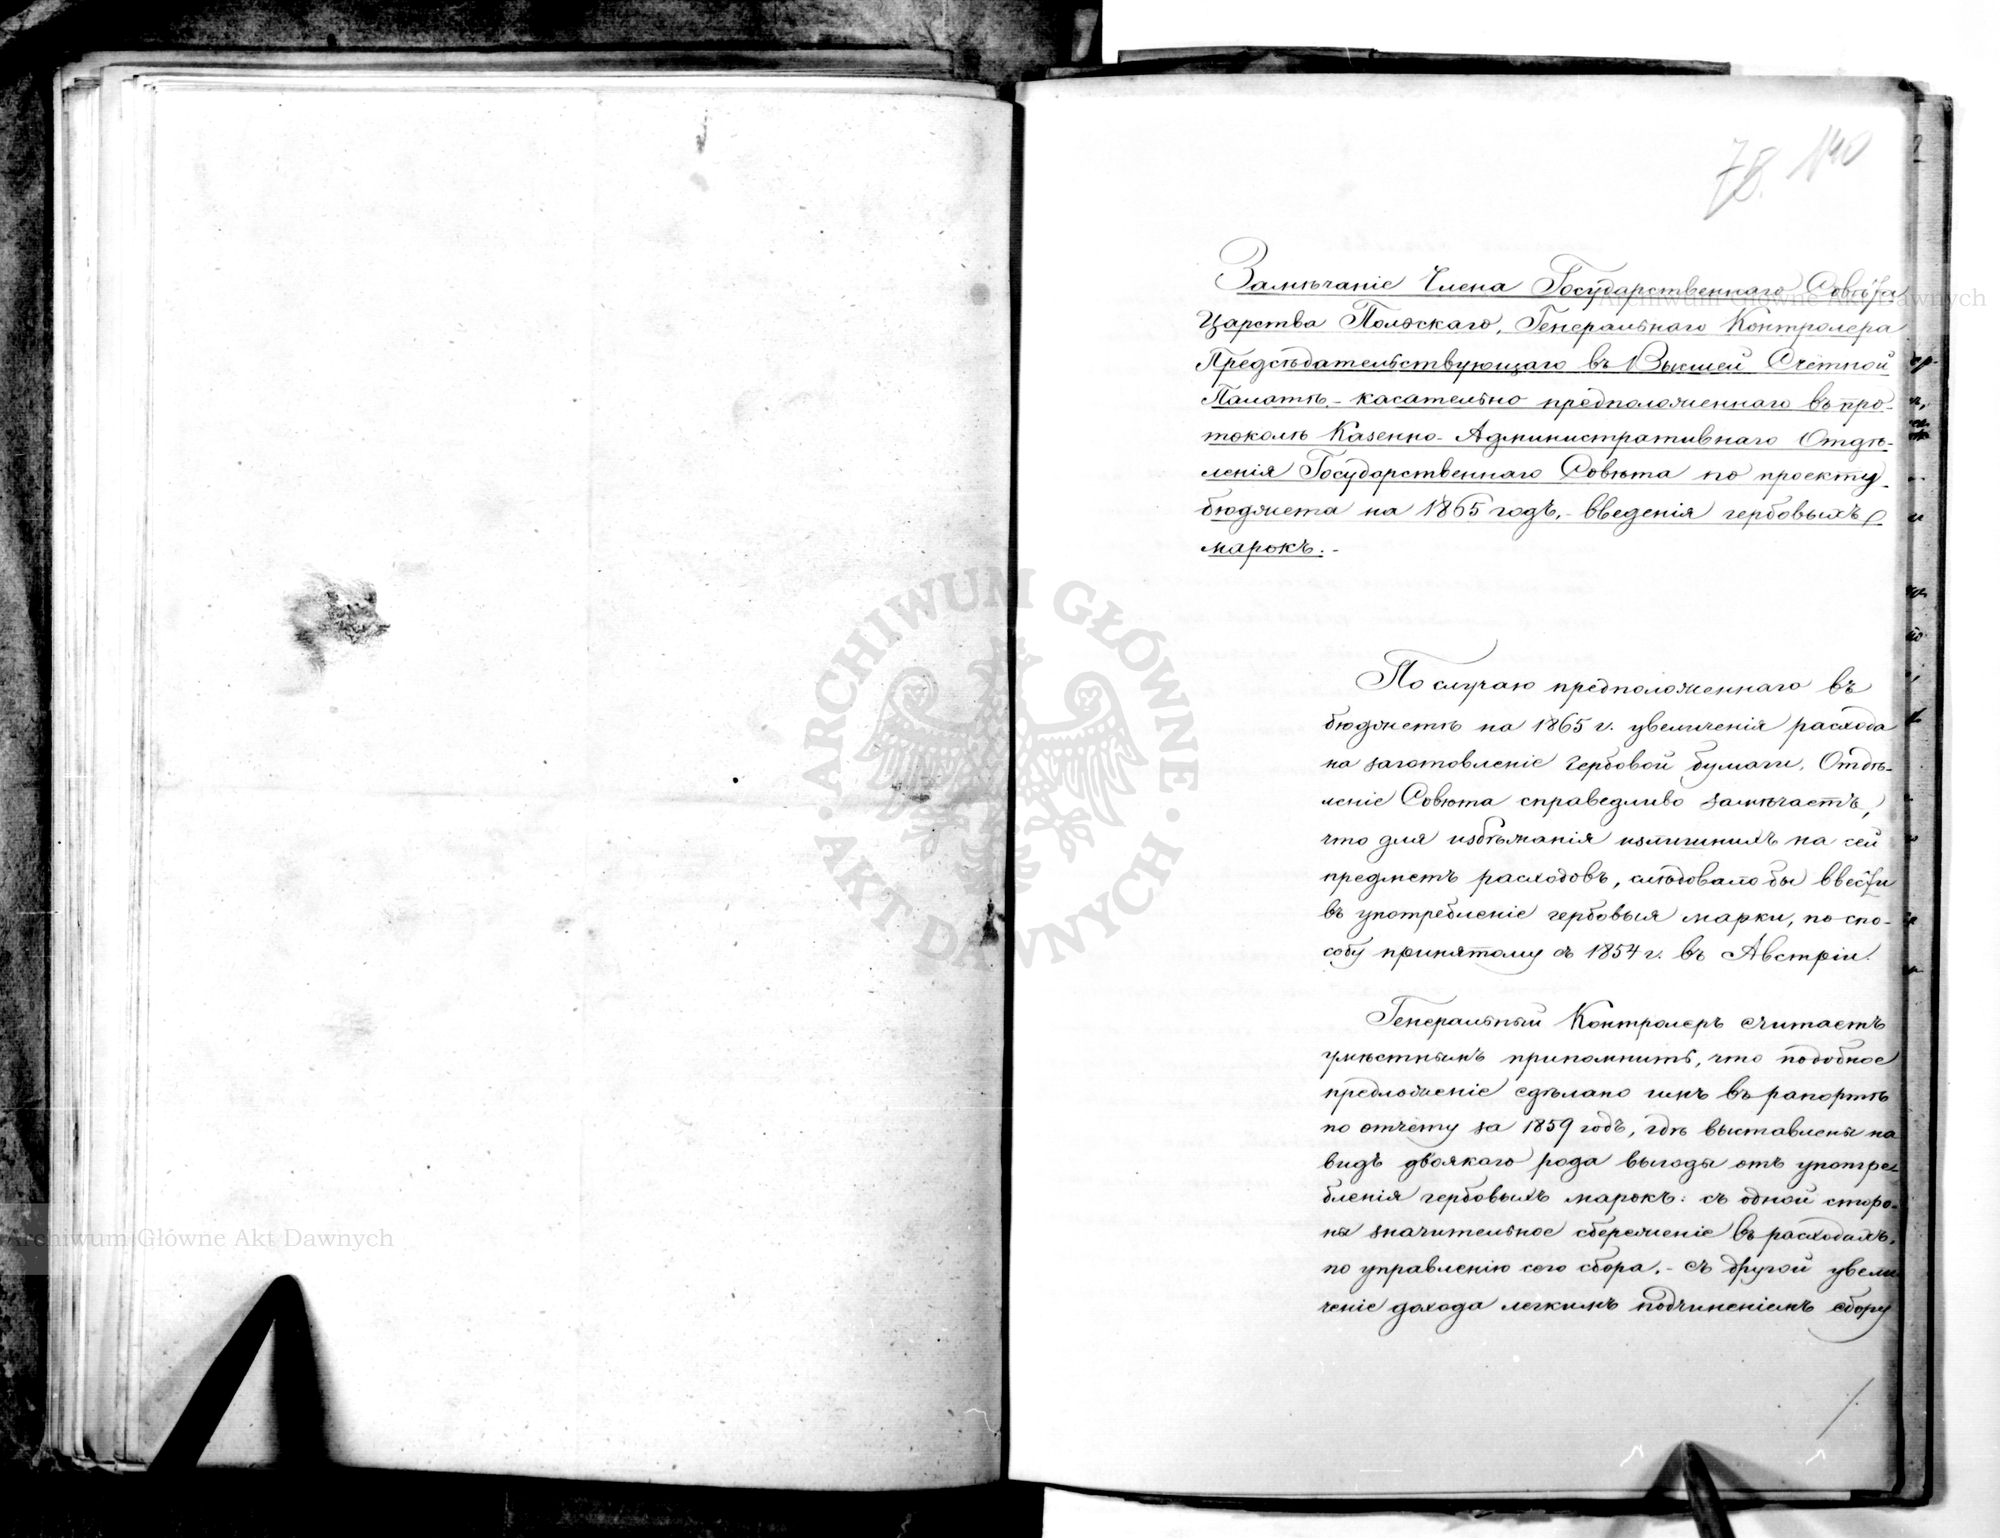 78. 140
Замѣчаніе Члена Государственнаго Совѣта
Царства Польскаго, Генеральнаго Контролера
Предсѣдательствующаго въ Высшей Счетной
Палатѣ,- касательно предположеннаго въ про-
токолѣ Казенно-Административнаго Отдѣ-
ленія Государственнаго Совѣта по проекту
бюджета на 1865 годъ,- введенія гербовыхъ
марокъ.-
По случаю предположеннаго въ
бюджетѣ на 1865 г. увеличенія расхода
на заготовленіе гербовой бумаги, Отдѣ-
леніе Совѣта справедливо замѣчаетъ,
что для избѣжанія излишнихъ на сей
предметъ расходовъ, слѣдовало бы ввести
въ употребленіе гербовыя марки, по спо-
собу принятому съ 1854 г. въ Австріи.
Генеральный Контролеръ считаетъ
умѣстнымъ припомнить, что подобное
предложеніе сдѣлано имъ въ рапортѣ
по отчету за 1859 годъ, гдѣ выставлены на
видъ двоякаго рода выгоды отъ употре-
бленія гербовыхъ марокъ: съ одной сторо-
ны значительное сбереженіе въ расходахъ,
по управленію сего сбора,- съ другой увели
ченіе дохода легкимъ подчиненіемъ сбору
Archiwum Główne Akt Dawnych
Archiwum Główne Akt Dawnych
ARCHIWUM GŁÓWNE · AKT DAWNYCH ·